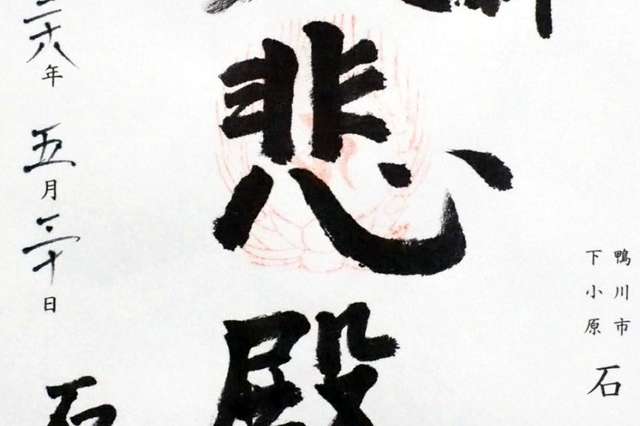 鴨川市
下小原
石
悲殿
二十八年五月三十日
石